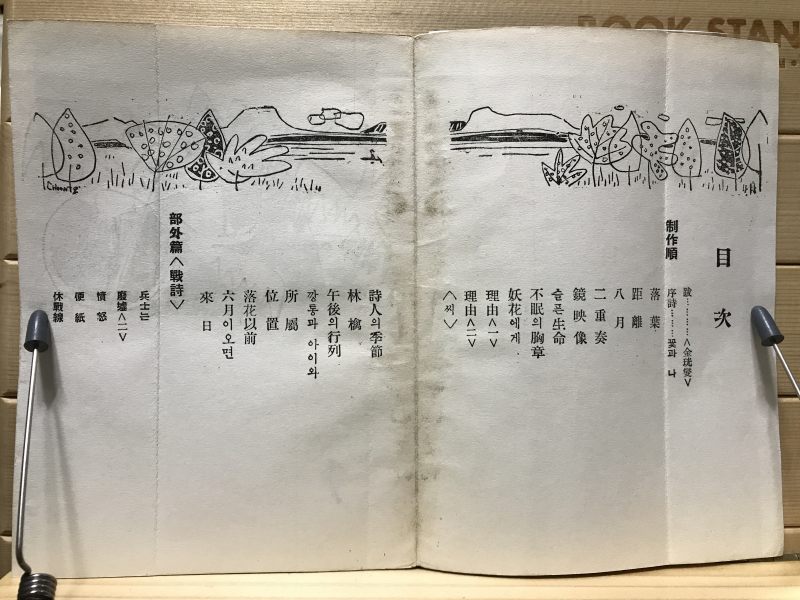 BOOK STAN
目次
制作順
跋…………<金珖燮>
序詩………꽃과 나
落葉
距離
八月
二重奏
鏡映像
슬픈生命
不眠의胸章
妖花에게
理由<一>
理由<二>
<씨>
詩人의季節
林檎
午後의行列
깡통과 아이와
所屬
位置
落花以前
六月이오면
來日
部外篇<戰詩>
兵士는
廢墟<二>
憤怒
便紙
休戰線